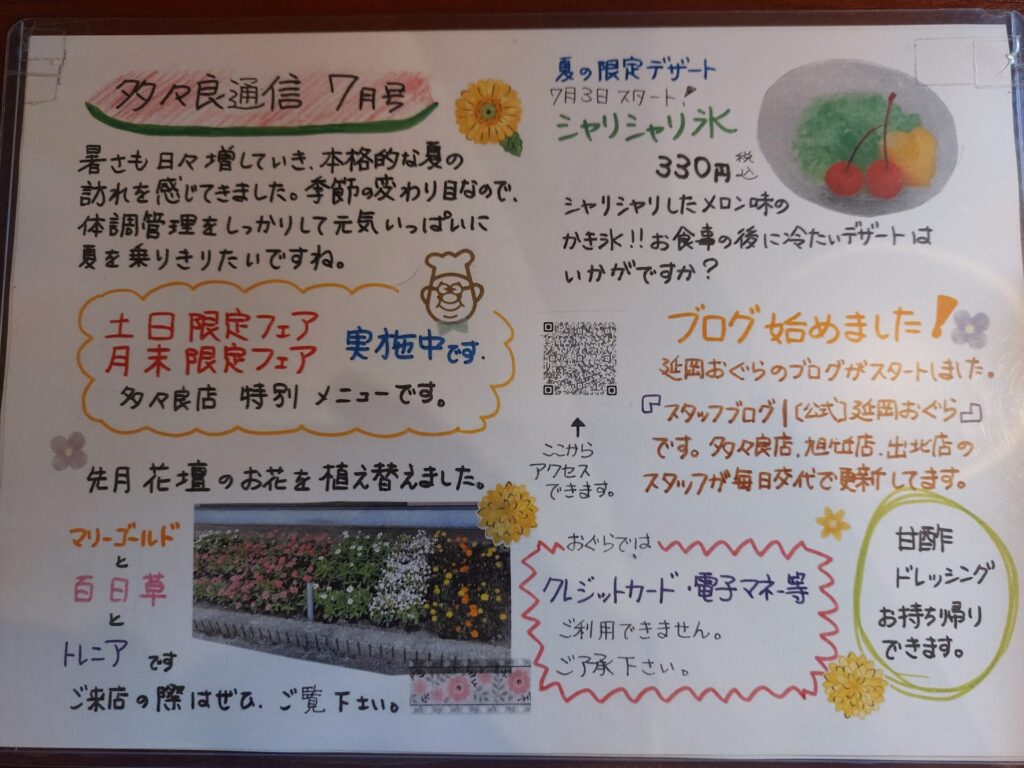 多々良通信 7月号
暑さも日々増していき、本格的な夏の
訪れを感じてきました。季節の変わり目なので、
体調管理をしっかりして元気いっぱいに
夏を乗りきりたいですね。
土日限定フェア
月末限定フェア
実施中です.
多々良店 特別 メニューです。
先月 花壇のお花を植え替えました。
マリーゴールド
と
百日草
と
トレニア です
ご来店の際はぜひ、ご覧下さい。
夏の限定デザート
7月3日スタート!
シャリシャリ氷
330円 税込
シャリシャリしたメロン味の
かき氷!!お食事の後に冷たいデザートは
いかがですか?
ブログ始めました!
延岡おぐらのブログがスタートしました。
『スタッフブログ|[公式]延岡おぐら』
です。多々良店、旭ヶ丘店、出北店の
スタッフが毎日交代で更新してます。
↑
ここから
アクセス
できます。
おぐらでは、
クレジットカード・電子マネー等
ご利用できません。
ご了承下さい。
甘酢
ドレッシング
お持ち帰り
できます。